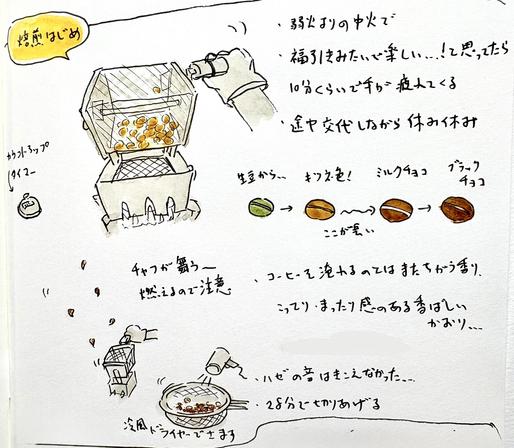 焙煎はじめ
・弱火よりの中火で
・福引きみたいで楽しい…!て思ってたら
10分くらいで手が疲れてくる
・途中交代しながら休み休み
カウントアップ
タイマー
生豆から…
キツネ色!
ミルクチョコ
ブラック
チョコ
ここが長い
チャフが舞う〜
燃えるので注意
・コーヒーを淹れるのとはまたちがう香り。
こってり・まったり感のある香ばしい
かおり…
・ハゼの音はきこえなかった…
・28分で切りあげる
冷風ドライヤーでさます